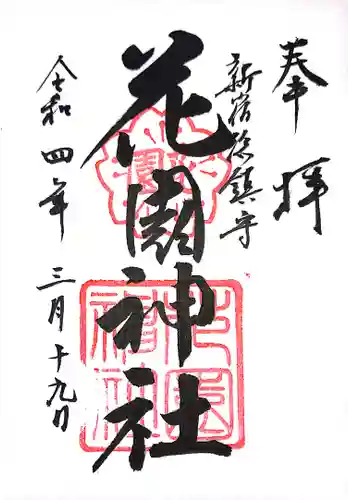 奉拝
新宿総鎮守
花園神社
令和四年三月十九日
花園神社